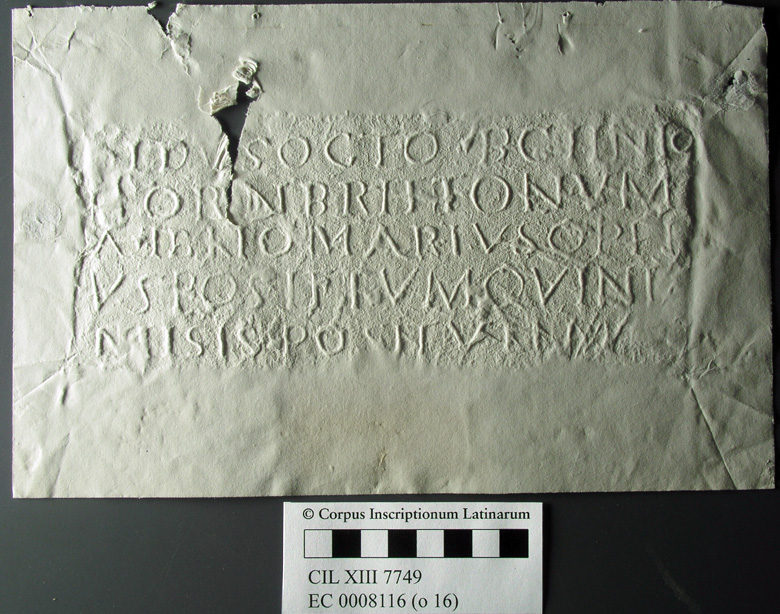 IDVS OCTOBGIINIO
HORNBRITTONVM
A IBLIOMARIVSOPFI
VSPOSITTVMQVINT
NIISISPOSITVLLM
© Corpus Inscriptionum Latinarum
CIL XIII 7749
EC 0008116 (o 16)